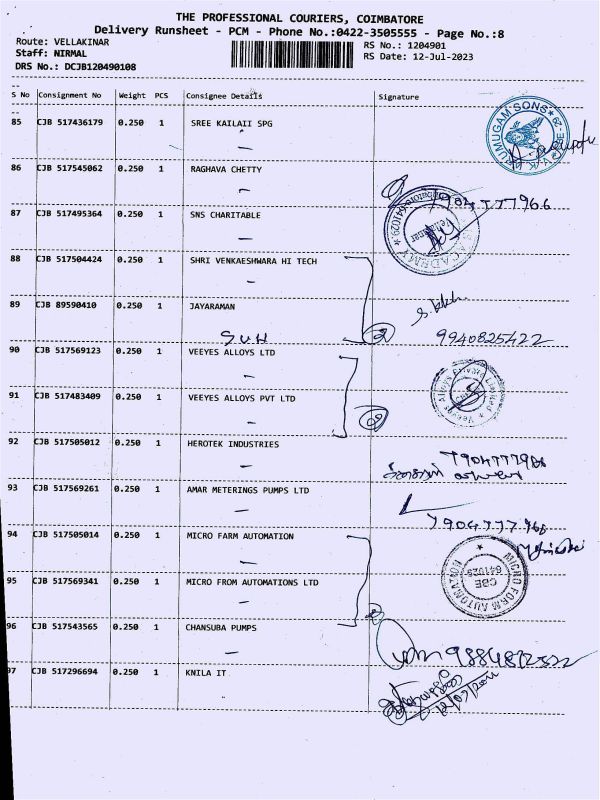 THE PROFESSIONAL COURIERS, COIMBATORE
Delivery Runsheet - PCM - Phone No.:0422-3505555 - Page No.:8
Route: VELLAKINAR RS No.: 1204901
Staff: NIRMAL RS Date: 12-Jul-2023
DRS No.: DCJB120490108
S No Consignment No Weight PCS Consignee Details Signature
85 CJB 517436179 0.250 1 SREE KAILAII SPG
86 CJB 517545062 0.250 1 RAGHAVA CHETTY
7904777966
87 CJB 517495364 0.250 1 SNS CHARITABLE
88 CJB 517504424 0.250 1 SHRI VENKAESHWARA HI TECH
89 CJB 89590410 0.250 1 JAYARAMAN
S.U.H 2 9940825422
90 CJB 517569123 0.250 1 VEEYES ALLOYS LTD
91 CJB 517483409 0.250 1 VEEYES ALLOYS PVT LTD
2
92 CJB 517505012 0.250 1 HEROTEK INDUSTRIES
93 CJB 517569261 0.250 1 AMAR METERINGS PUMPS LTD
7904777966
94 CJB 517505014 0.250 1 MICRO FARM AUTOMATION
MICRO FORM AUTOMATION
CBE
641029
95 CJB 517569341 0.250 1 MICRO FROM AUTOMATIONS LTD
96 CJB 517543565 0.250 1 CHANSUBA PUMPS
97 CJB 517296694 0.250 1 KNILA IT